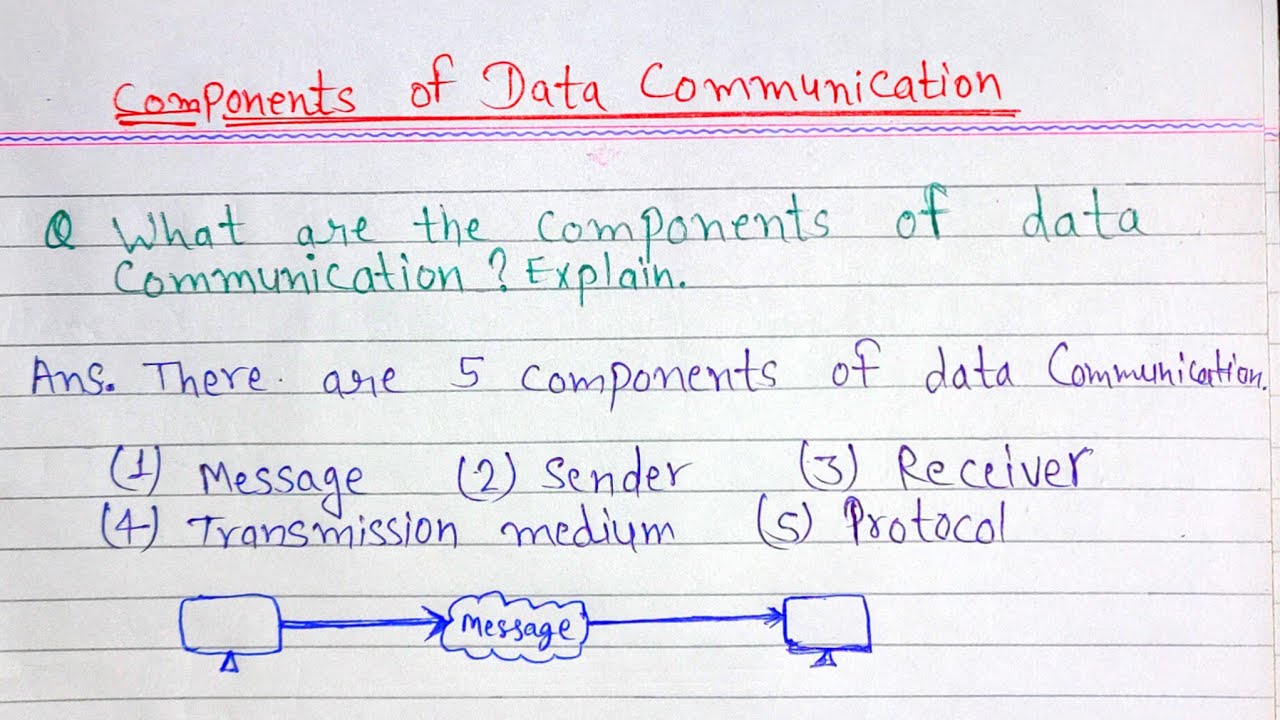 Components of Data Communication
Q What are the components of data
Communication? Explain.
Ans. There are 5 components of data Communication.
(1) Message (2) Sender (3) Receiver
(4) Transmission medium (5) Protocol
Message